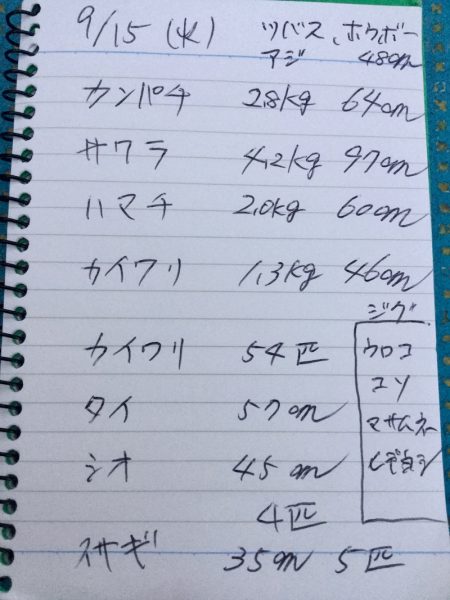 9/15 (水) ツバス、ホウボー
アジ 48cm
カンパチ 2.8kg 64cm
サワラ 4.2kg 97cm
ハマチ 2.0kg 60cm
カイワリ 1.3kg 46cm
ジグ
カイワリ 54匹 ウロコ
コソ
タイ 57cm マサムネ
シオ 45cm
4匹
ウサギ 35cm 5匹